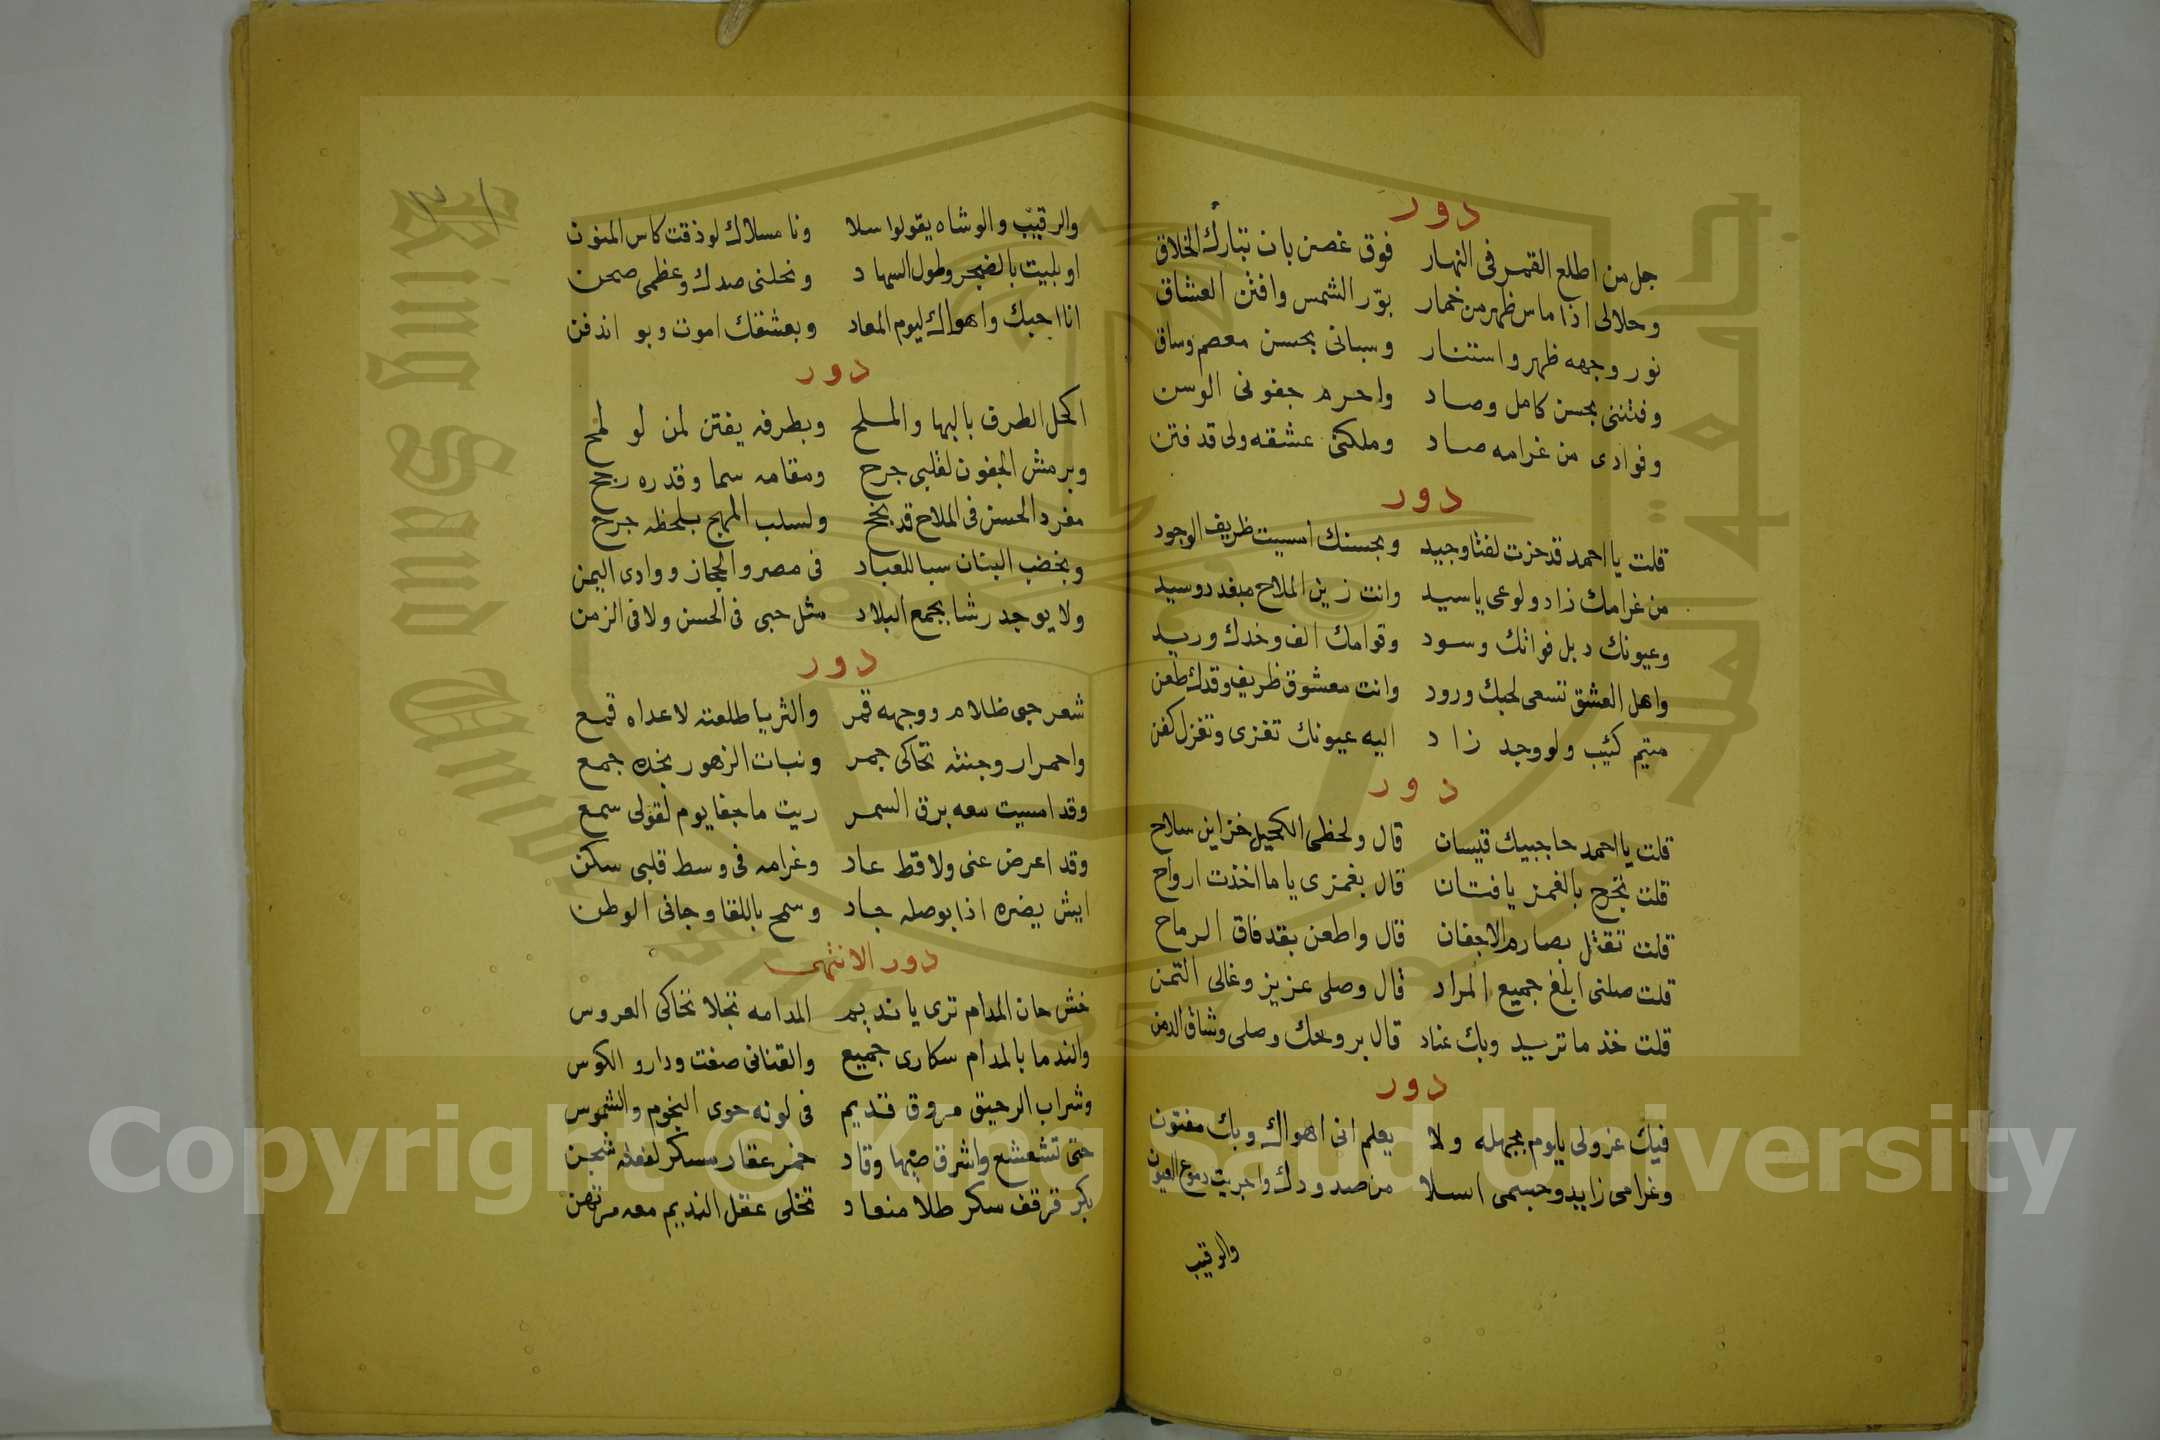 دور
جل من اطلع القمر فى النهار فوق غصن بان تبارك الخلاق
وحلالى اذا ماس ظهر من خمار بوّر الشمس وافتن العشاق
نور وجهه ظهر واستنار وسبانى بحسن معصم وساق
وفتننى بحسن كامل وصاد واحرم جفونى الوسن
وفوادى من غرامه صاد وملكنى عشقه ولى قد فتن
دور
قلت يا احمد قد حزت لفتا وجيد وبحسنك امسيت ظريف الوجود
من غرامك زاد ولوعى ياسيد وانت زين الملاح مبغدد وسيد
وعيونك دبل فواتك وسود وقوامك الف وخدك وريد
واهل العشق تسعى لحبك ورود وانت معشوق ظريف وقدك طعن
متيم كئيب ولو وجد زاد اليه عيونك تغزى وتغزل كفن
دور
قلت يا احمد حاجبيك قيسان قال ولحظى الكحيل خزاين سلاح
قلت تجرح بالغمز يا فتان قال بغمزى ياما اخذت ارواح
قلت تقتل بصارم الاجفان قال واطعن بقد فاق الرماح
قلت صلنى ابلغ جميع المراد قال وصلى عزيز وغالى الثمن
قلت خذ ما تريد وبك عناد قال بروحك وصلى وشاق الدمن
دور
فيك عزولى يلوم بجهله ولا يعلم انى اهواك وبك مفتون
وغرامى زايد وجسمى اسلا من صدودك واجريت دموع العيون
والرقيب
والرقيب والوشاه يقولوا سلا ونا مسلاك لو ذقت كاس المنون
او بليت بالضجر وطول السهاد ونحلنى صدك وعظمى صحن
انا احبك واهواك ليوم المعاد وبعشقك اموت وبو اندفن
دور
اكحل الطرف بالبها والملح وبطرفه يفتن لمن لو لمح
وبرمش الجفون لقلبى جرح ومقامه سما وقدره رجح
مفرد الحسن فى الملاح قد نجح ولسلب المهج بلحظه جرح
وبخضب البنان سبا للعباد فى مصر والحجاز ووادى اليمن
ولا يوجد رشا بجمع البلاد مثل حبى فى الحسن ولا فى الزمن
دور
شعر حبى ظلام ووجهه قمر والثريا طلعته لاعداه قمع
واحمرار وجنته تحاكى جمر ونبات الزهور بخده جمع
وقد امسيت معه برق السمر ريت ما جفا يوم لقولى سمع
وقد اعرض عنى ولا قط عاد وغرامه فى وسط قلبى سكن
ايش يضره اذا بوصله جاد وسمح باللقا وجانى الوطن
دور الانتهى
خش حان المدام ترى يا نديم المدامه تجلا تحاكى العروس
والندما بالمدام سكارى جميع والقنانى صفت ودارو الكوس
وشراب الرحيق مروق قديم فى لونه حوى النجوم والشموس
حتى تشعشع واشرق صبها وقاد خمر عقار سسكر لفعله شجن
بكر قرقف سكر طلا منعاد تخلى عقل النديم معه مرتهن